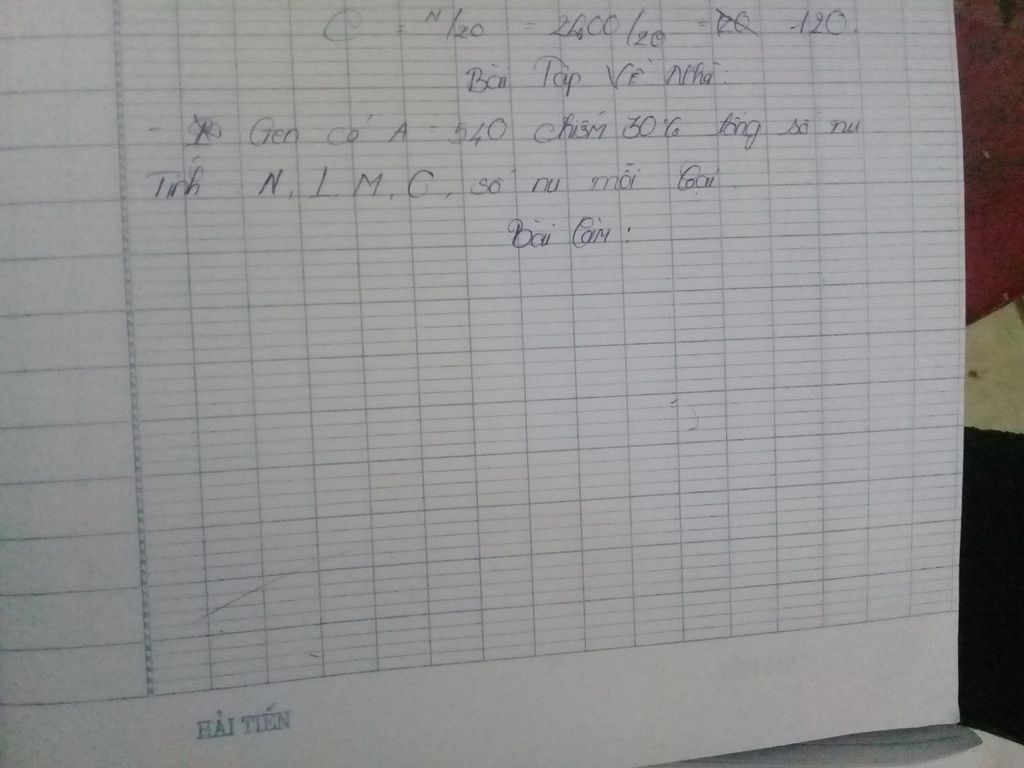 C = N/20 = 2400/20 = 120.
Bài Tập Về Nhà.
- Gen có A = 540 chiếm 30% tổng số nu
Tính N, L, M, C, số nu mỗi loại
Bài làm:
HẢI TIẾN